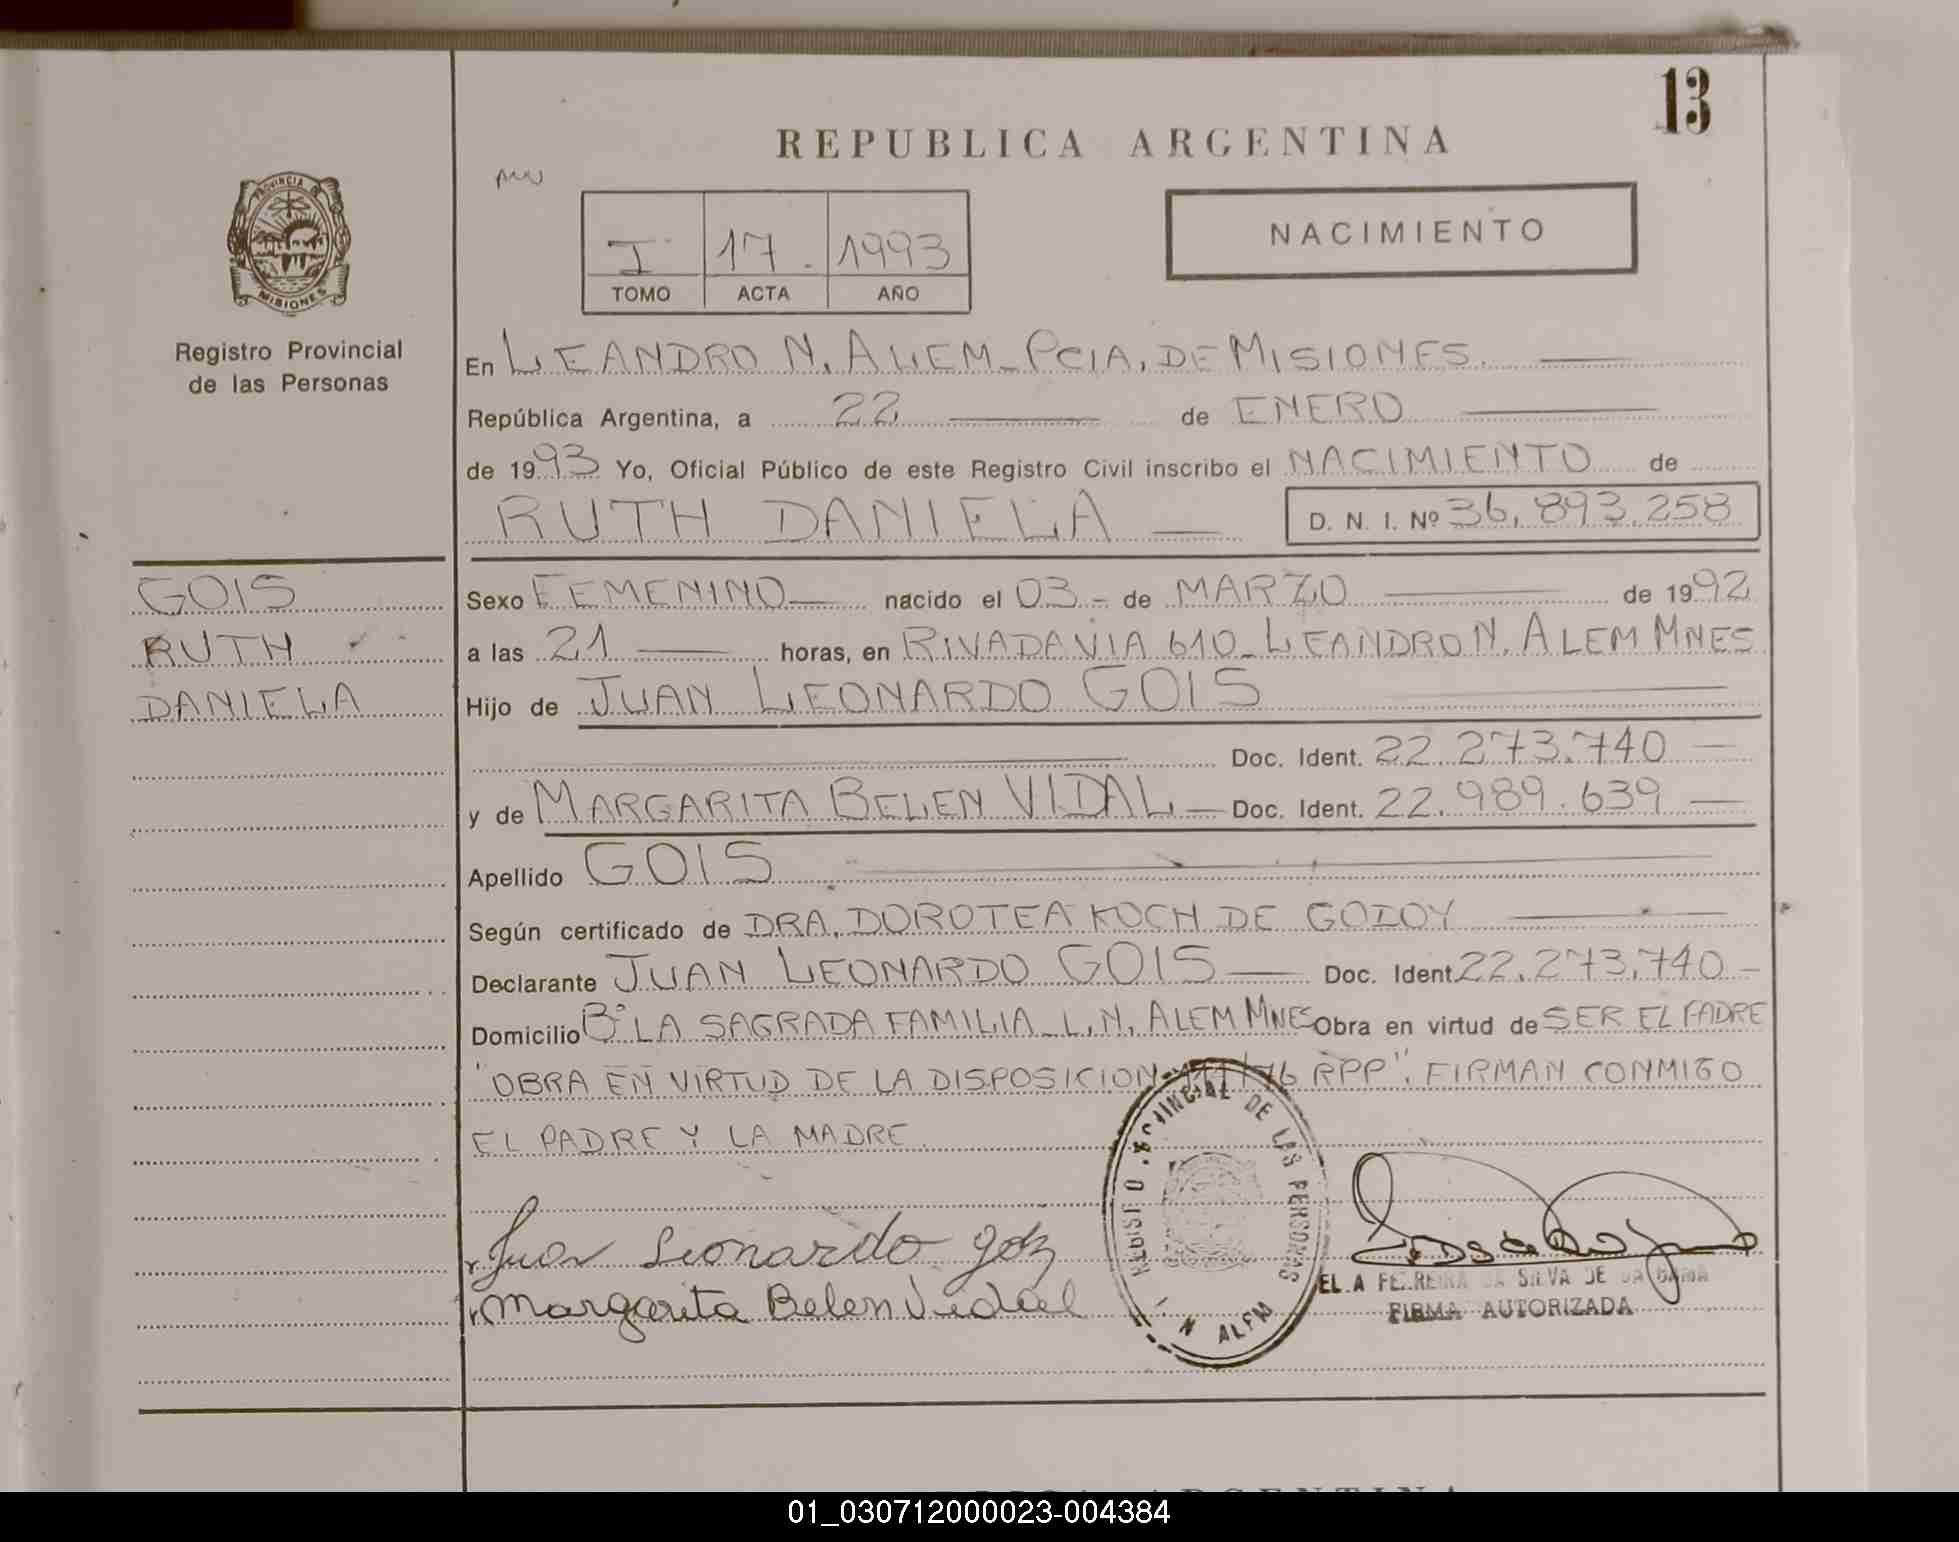 13
REPUBLICA ARGENTINA
PROVINCIA DE
MISIONES
Registro Provincial
de las Personas
NACIMIENTO
I 17. 1993
TOMO ACTA AÑO
En LEANDRO N. ALEM_PCIA. DE MISIONES.
República Argentina, a 22 de ENERO
de 1993 Yo, Oficial Público de este Registro Civil inscribo el NACIMIENTO de
RUTH DANIELA D. N. I. Nº 36.893.258
GOIS
RUTH
DANIELA
Sexo FEMENINO nacido el 03 - de MARZO de 1992
a las 21 horas, en RIVADAVIA 610_LEANDRO N. ALEM MNES
Hijo de JUAN LEONARDO GOIS
Doc. Ident. 22.273.740
y de MARGARITA BELEN VIDAL Doc. Ident. 22.989.639
Apellido GOIS
Según certificado de DRA. DOROTEA KOCH DE GODOY
Declarante JUAN LEONARDO GOIS Doc. Ident. 22.273.740
Domicilio Bº LA SAGRADA FAMILIA_L.N. ALEM MNES Obra en virtud de SER EL PADRE
"OBRA EN VIRTUD DE LA DISPOSICION /76 RPP". FIRMAN CONMIGO
EL PADRE Y LA MADRE.
DE LAS PERSONAS
N ALEM
Juan Leonardo Gois
Margarita Belen Vidal
FERREIRA DA SILVA DE DA GAMA
FIRMA AUTORIZADA
ARGENTINA
01_030712000023-004384